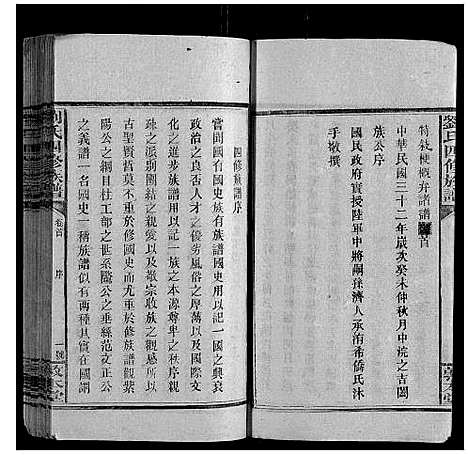 特敘梗概弁諸譜首
中華民國三十二年歲次癸未仲秋月中浣之吉闔
族公序
國民政府實授陸軍中將嗣孫濟人承洧希僑氏沐
手敬撰
劉氏四修族譜
四修族譜序
嘗聞國有國史族有族譜國史用以記一國之興衰
政治之良否人才之優劣風俗之厚薄以及國際文
化之進步族譜用以記一族之本源尊卑之秩序親
疎之派别團結之親愛以及敬宗收族之觀感所以
古聖賢哲莫不重於修國史而尤重於修族譜觀紫
陽公之綱目杜工部之世系蘇老泉之範文正公
之義譜一名國史一稱族譜似有兩種其實在國謂
劉氏四修族譜
卷首
序
一號